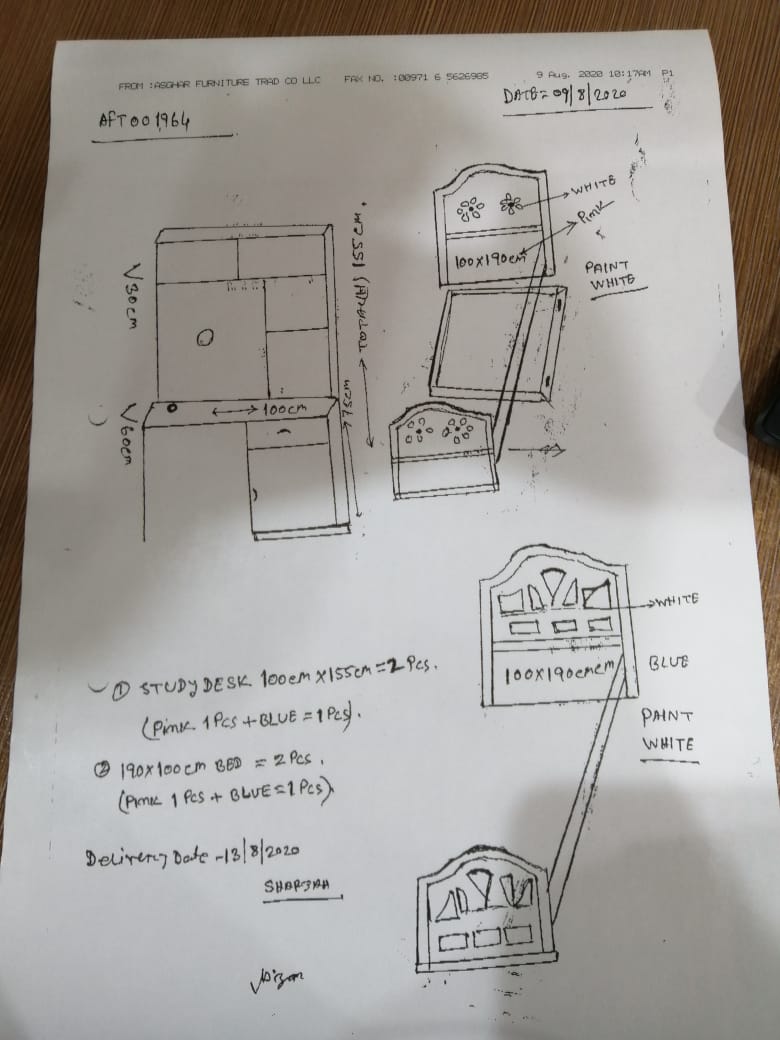 FROM :ASGHAR FURNITURE TRAD CO LLC FAX NO. :00971 6 5626985 9 Aug. 2020 10:17AM P1
DATE= 09/8/2020
AFT001964
WHITE
Pink
100X190cm
PAINT
WHITE
30cm
155CM
75cm
100cm
60cm
WHITE
100X190cmcm
BLUE
PAINT
WHITE
① STUDY DESK 100cm X155cm=2 Pcs.
(Pink 1Pcs + BLUE = 1Pcs).
② 190X100cm BED = 2 Pcs.
(Pink 1 Pcs + BLUE=1Pcs).
Delivery Date -13/8/2020
SHARJAH